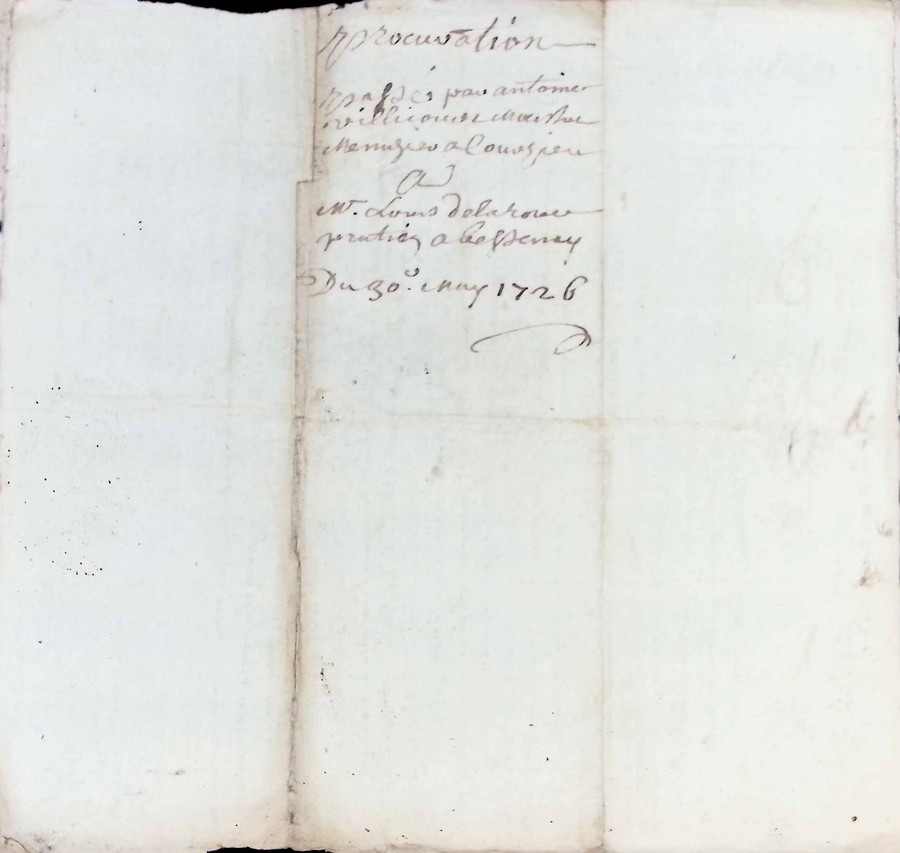 procuration
passée par antoine
Maistre
Menuzier a Louvzieu
A
Mr. Louis Delaroue
praticien a bessenay
Du 30e. May 1726